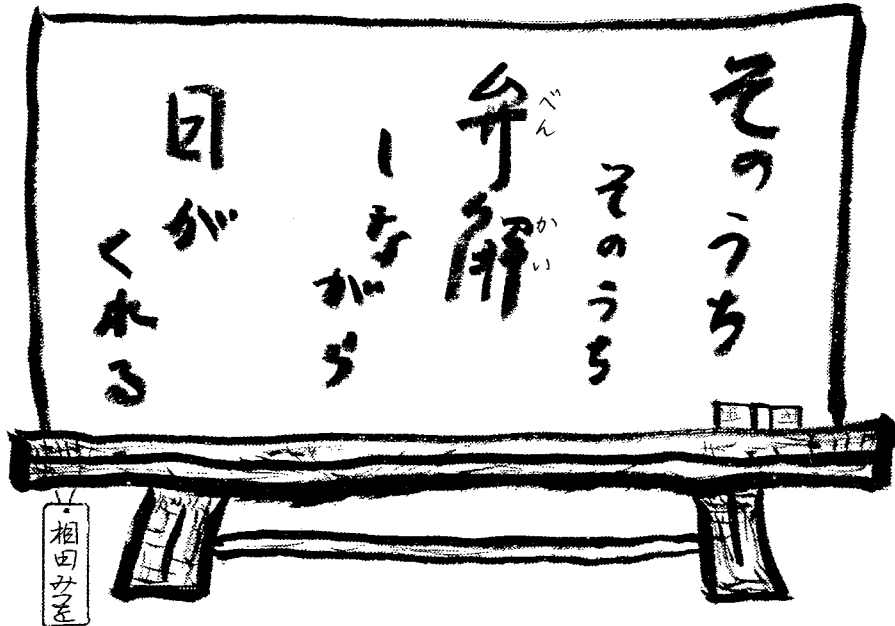 そのうち
そのうち
弁解
べんかい
しながら
日が
くれる
相田みつを